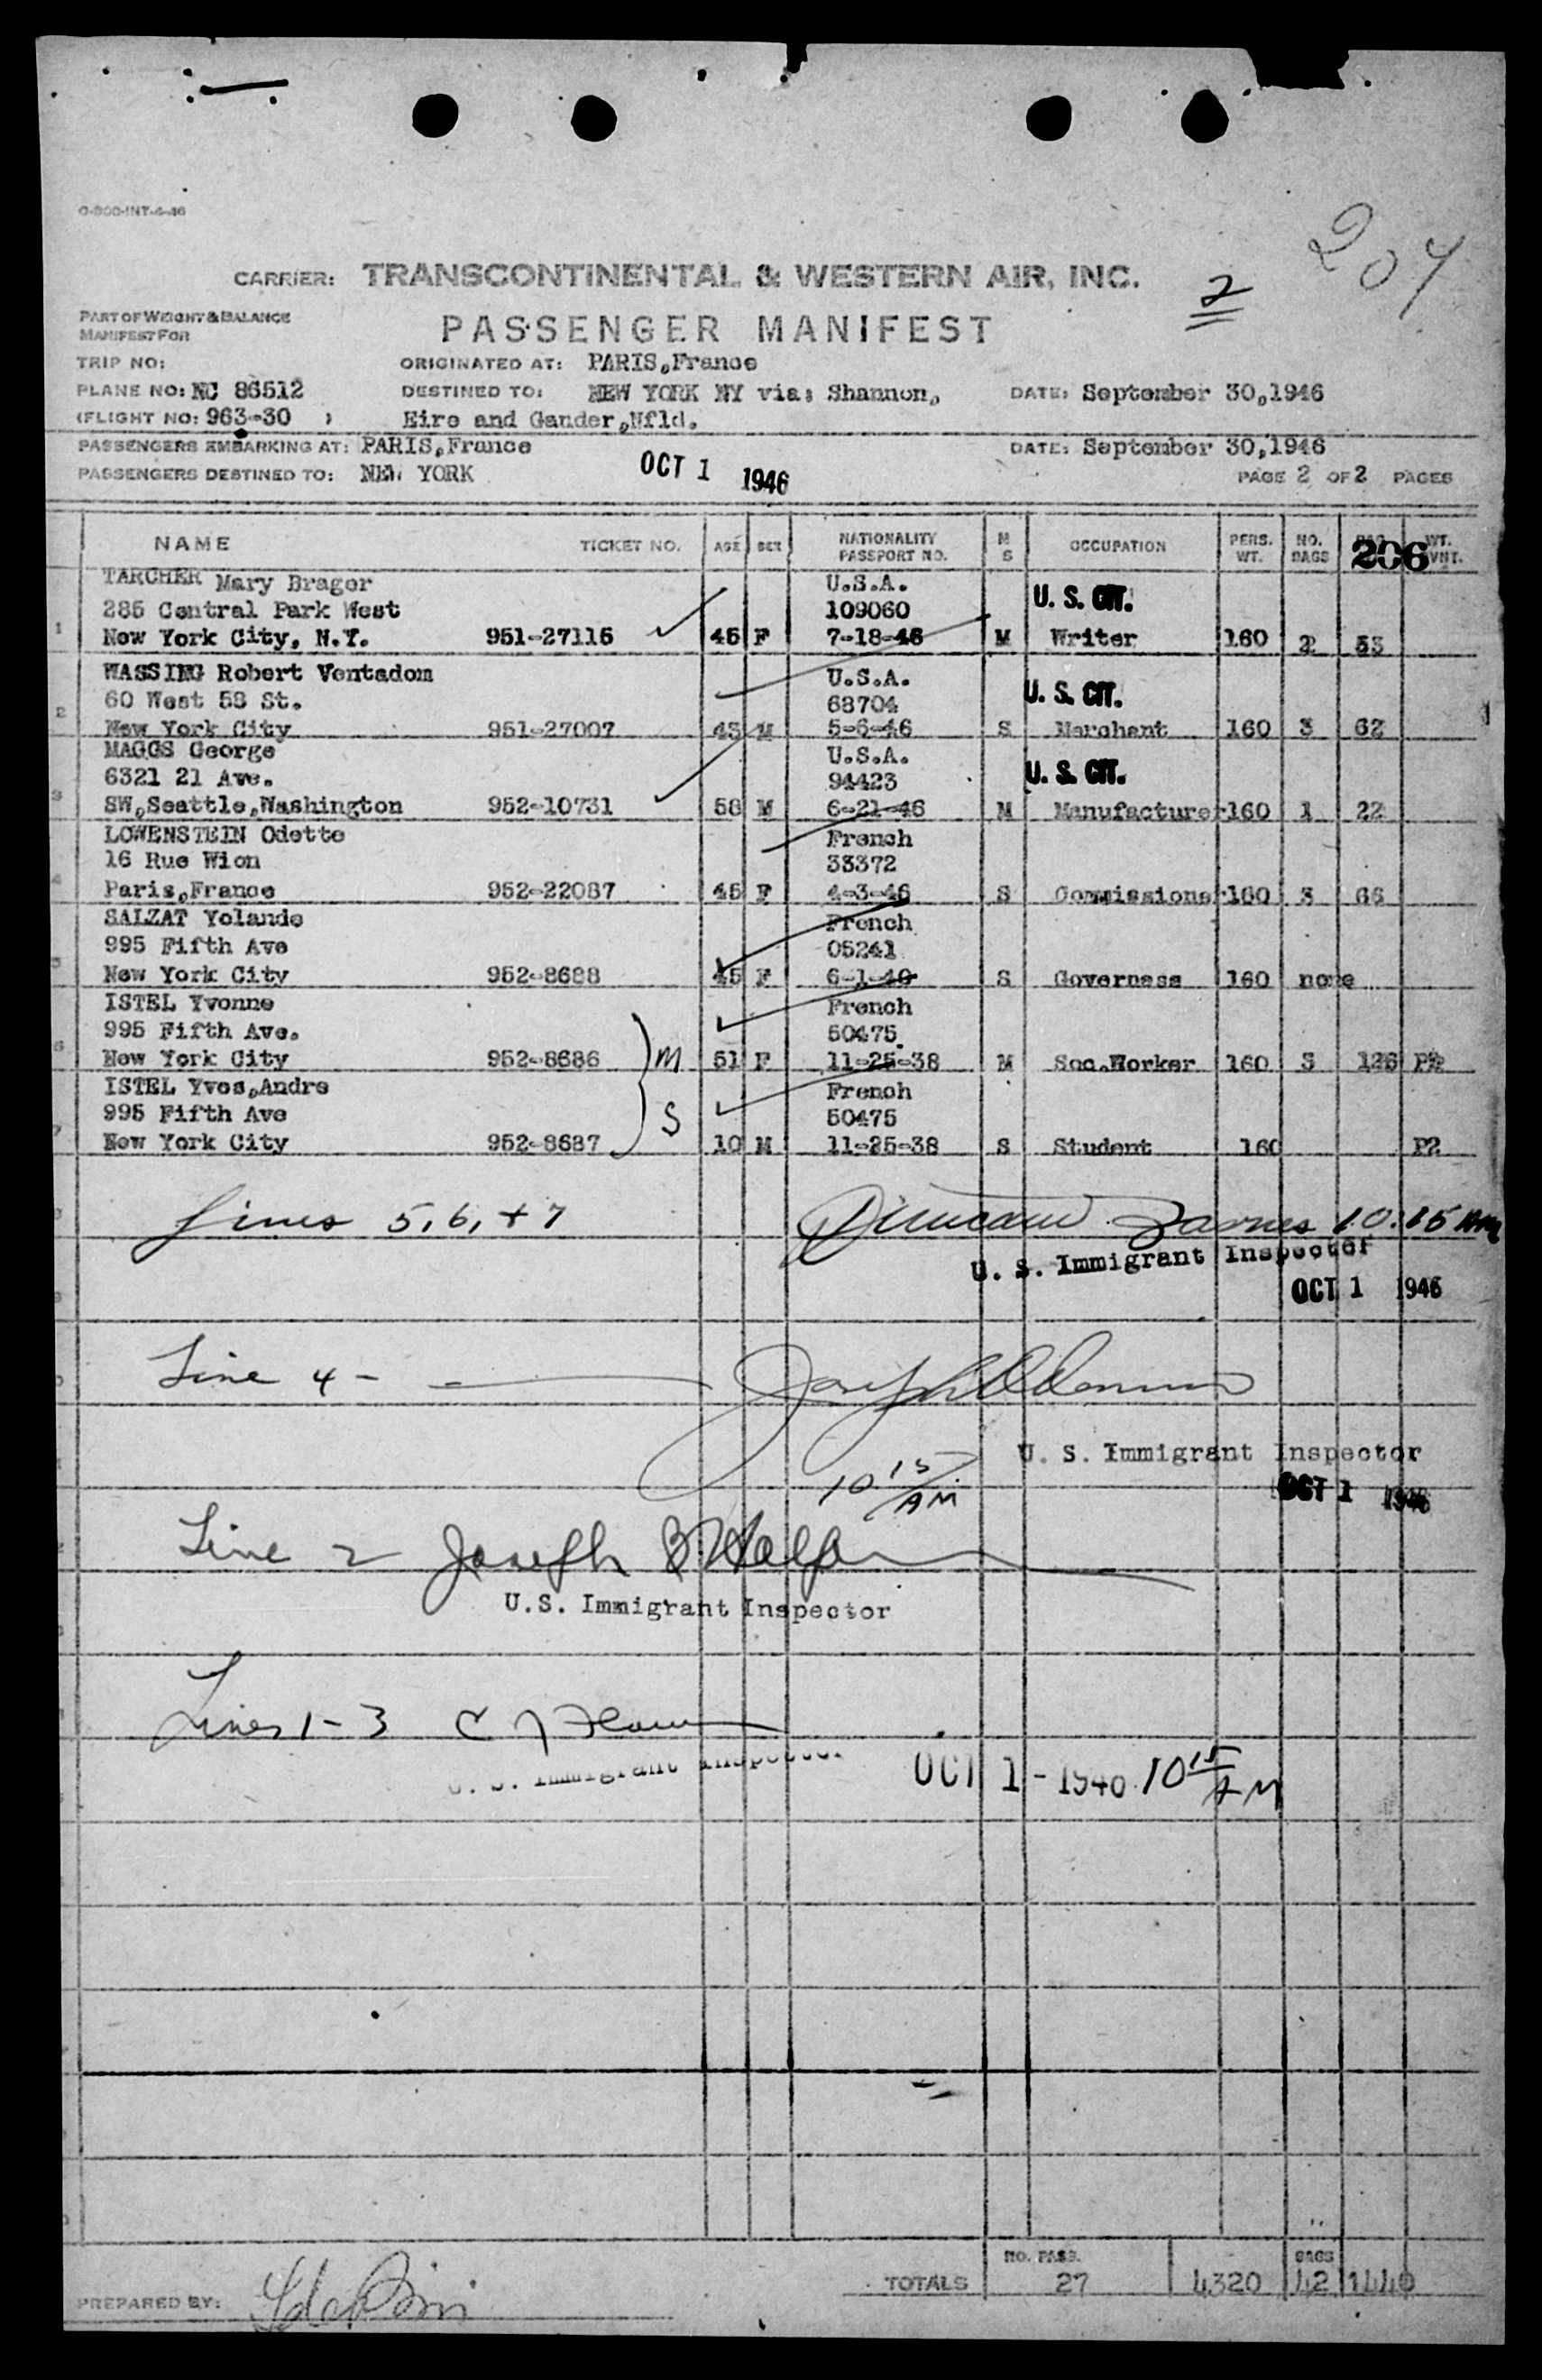 O-800-INT-4-46
204
CARRIER: TRANSCONTINENTAL & WESTERN AIR, INC.
2
PART OF WEIGHT & BALANCE
MANIFEST FOR
PASSENGER MANIFEST
TRIP NO: ORIGINATED AT: PARIS,France
PLANE NO: NC 86512 DESTINED TO: NEW YORK NY via: Shannon, DATE: September 30,1946
(FLIGHT NO: 963-30 ) Eire and Gander,Nfld.
PASSENGERS EMBARKING AT: PARIS,France DATE: September 30,1946
PASSENGERS DESTINED TO: NEW YORK OCT 1 1946 PAGE 2 OF 2 PAGES
NAME TICKET NO. AGE SEX NATIONALITY PASSPORT NO. M S OCCUPATION PERS. WT. NO. BAGS 206 WT.
TARCHER Mary Brager U.S.A.
285 Central Park West 109060 U. S. CIT.
1 New York City, N.Y. 951-27115 45 F 7-18-46 M Writer 160 2 53
WASSING Robert Ventadom U.S.A.
60 West 58 St. 68704 U. S. CIT.
2 New York City 951-27007 45 M 5-6-46 S Merchant 160 3 62
MAGGS George U.S.A.
6321 21 Ave. 94423 U. S. CIT.
3 SW,Seattle,Washington 952-10731 58 M 6-21-46 M Manufacturer 160 1 22
LOWENSTEIN Odette French
16 Rue Wion 33372
4 Paris,France 952-22087 45 F 4-3-46 S Commissioner 160 3 66
SALZAT Yolande French
995 Fifth Ave 05241
5 New York City 952-8688 45 F 6-1-46 S Governess 160 none
ISTEL Yvonne French
995 Fifth Ave. 50475
6 New York City 952-8686 M 51 F 11-25-38 M Soc.Worker 160 3 126 P2
ISTEL Yves,Andre French
995 Fifth Ave S 50475
7 New York City 952-8687 10 M 11-25-38 S Student 160 P2
Lines 5, 6, + 7 10:15 AM
U. S. Immigrant Inspector
OCT 1 1946
Line 4 - Joseph
U. S. Immigrant Inspector
10 15 AM
OCT 1 1946
Line 2 Joseph
U.S. Immigrant Inspector
Lines 1-3
U. S. Immigrant Inspector OCT 1 - 1946 10 15 AM
NO. PASS. BAGS
TOTALS 27 4320 42 1440
PREPARED BY: